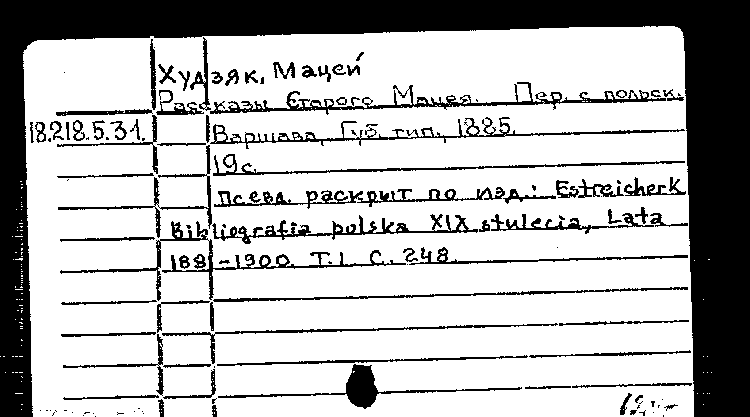 Худзяк, Мацей
Рассказы Старого Мацея. Пер. с польск.
18.218.5.31. Варшава, Губ. тип., 1885.
19с.
Псевд. раскрыт по изд.: Estreicher K
Bibliografia polska XIX stulecia, Lata
1881-1900. T.I. C. 248.